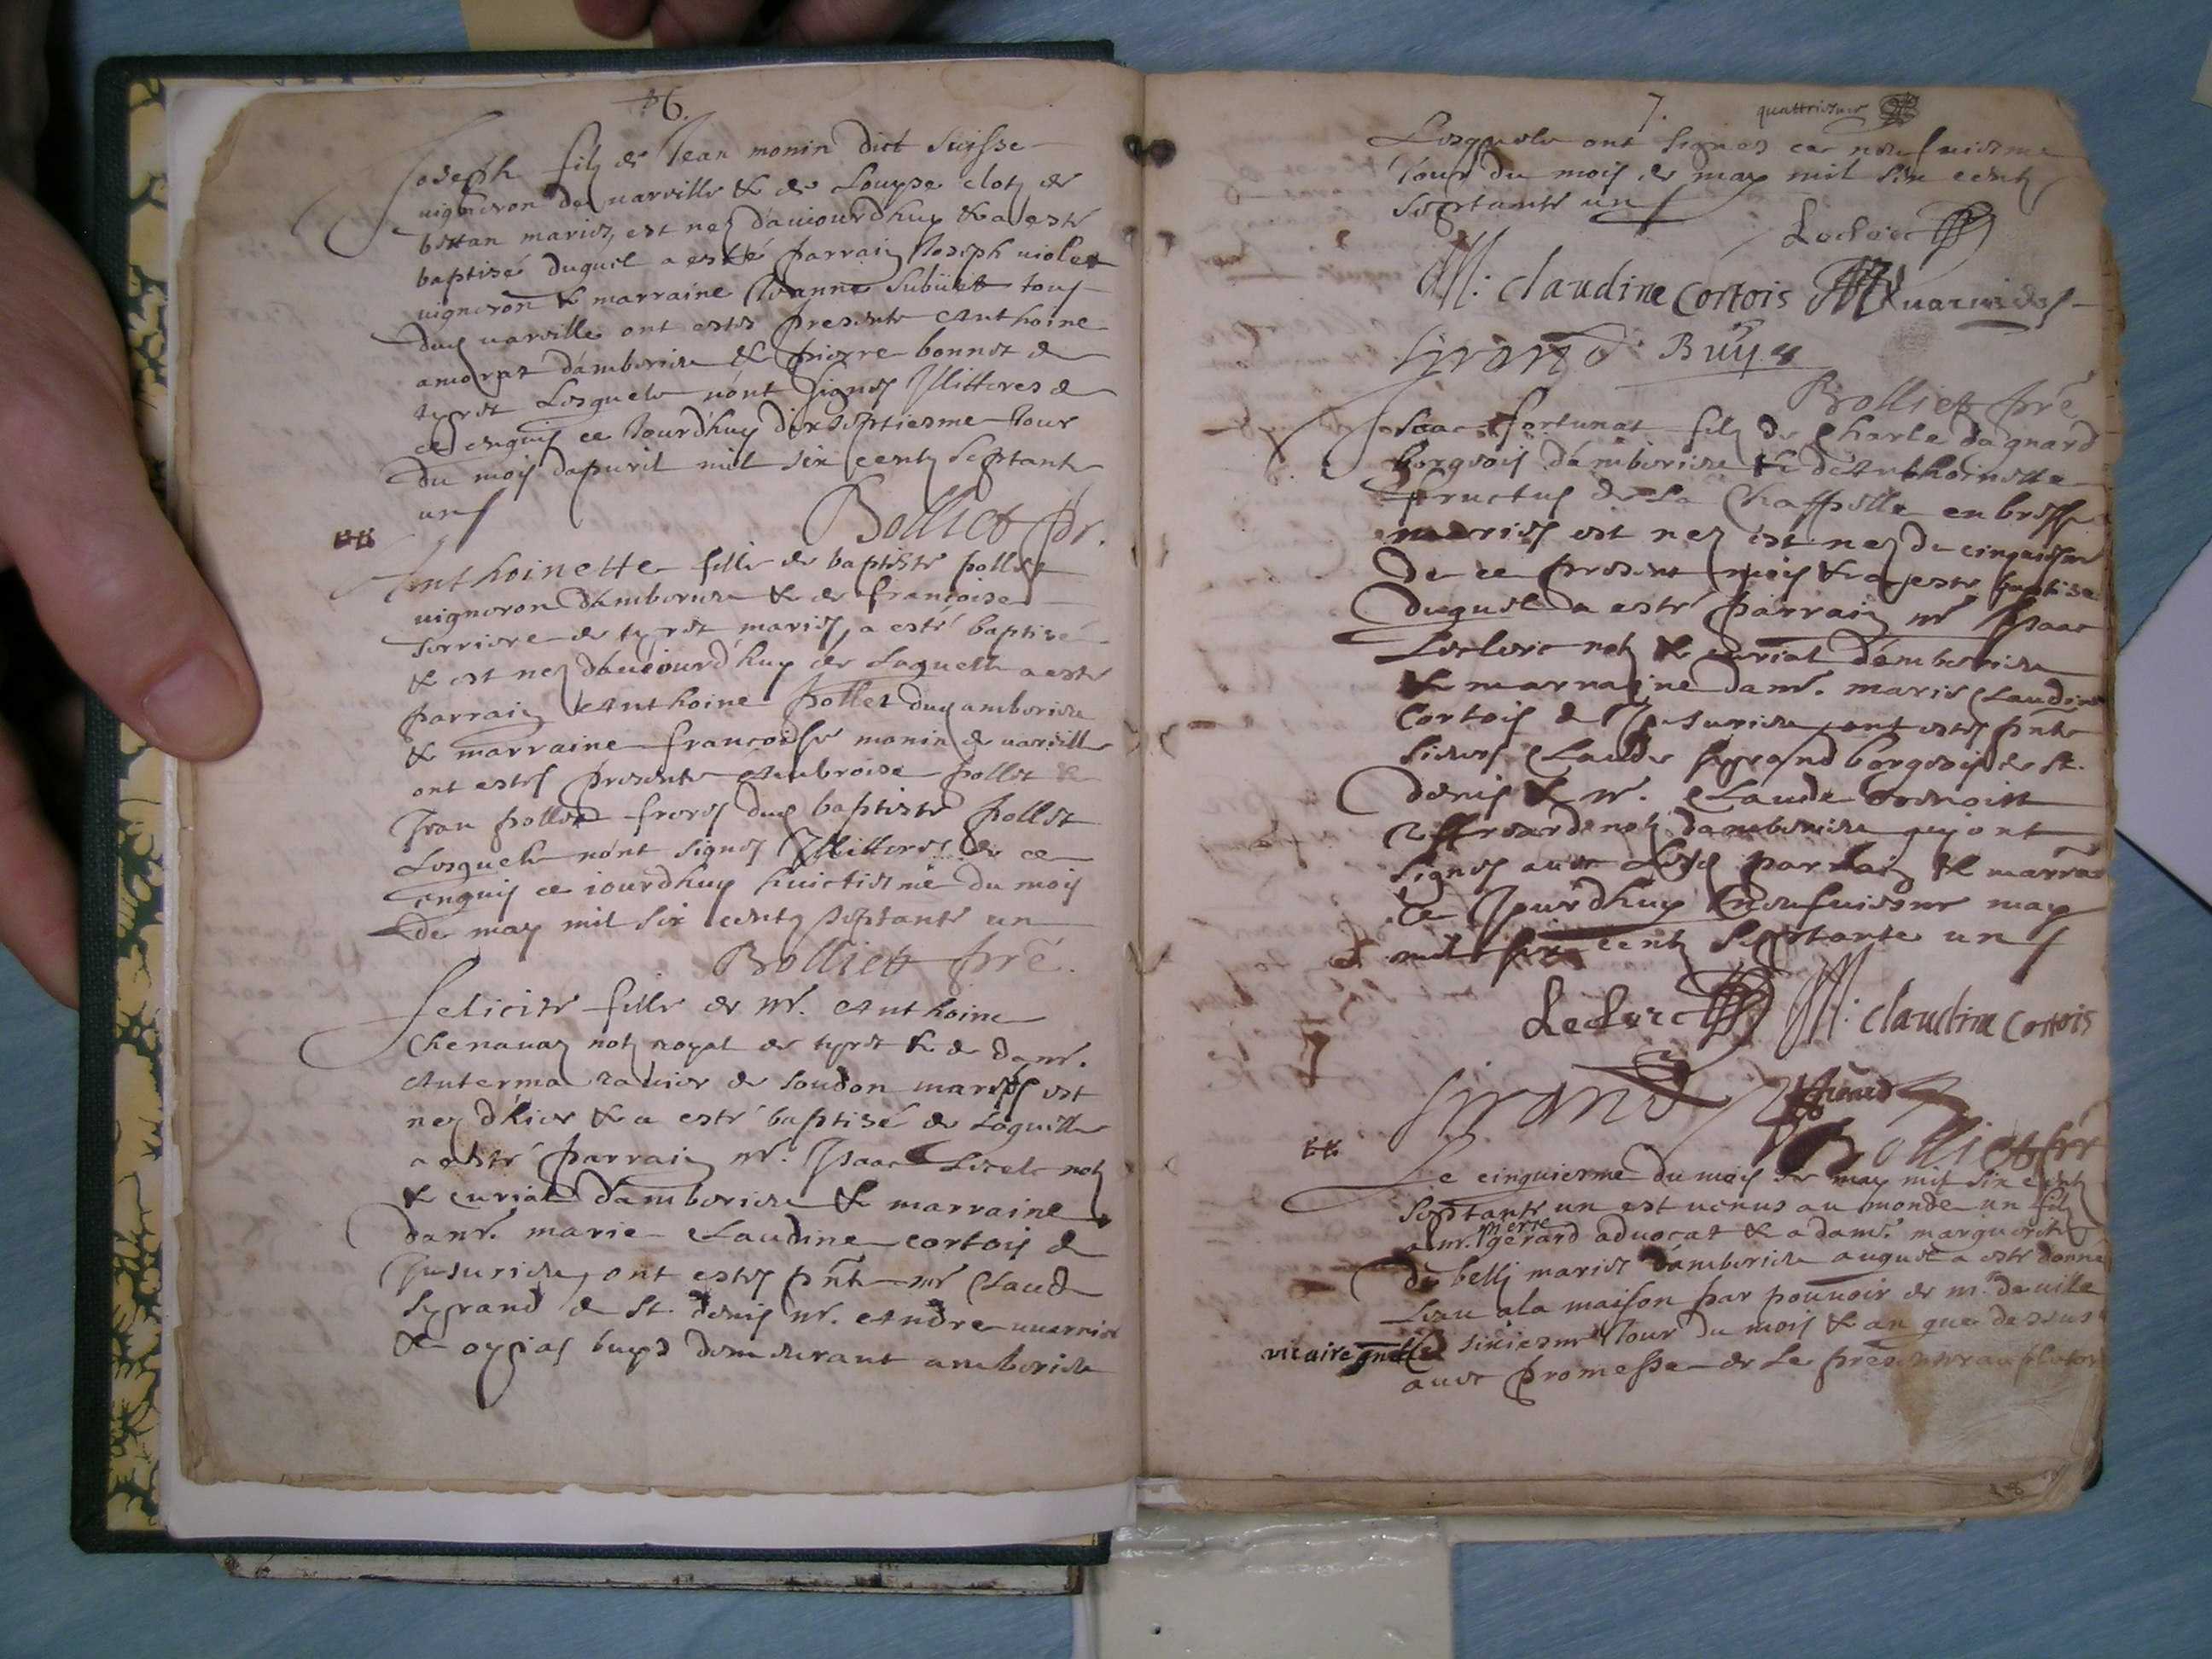 6.
Joseph filz de Jean monin dict Suisse
vigneron de varville & de Louyse clotz de
bettan mariez, est nez d'auiourdhuy & a esté
baptisé duquel a esté parrain Joseph violet
vigneron & marraine Jeanne Subüet tous
dud varville ont estés presents Anthoine
d'amberieu & pierre bonnet de
tyret Lesquels n'ont signés Illitteres de
ce enquis ce Jourdhuy dix septiesme Jour
du mois dapuril mil six centz septante
un
Bolliet pr.
Anthoinette fille de baptiste pollet
vigneron d'amberieu & de francoise
de tyret mariez, a esté baptisé
& est nez d'auiourd'huy de Laquelle a esté
parrain Anthoine pollet dud amberieu
& marraine francoise monin de varville
ont estés presents Ambroise pollet &
Jean pollet freres dud baptiste pollet
Lesquels n'ont signés Illitteres de ce
enquis ce iourdhuy huictiesme du mois
de may mil six centz septante un
Bolliet pre.
felicite fille de mr. Anthoine
Chenauaz notz royal de tyret & de damle.
Anterma rauier de Loudon mariez est
nez d'hier & a esté baptisé de Laquelle
a esté parrain mr. Isaac notz
& curial d'amberieu & marraine
damle. marie Claudine cortois de
Jusurieu, ont estés pnts mr Claude
Syrand de St. denis mr. Andre
& buys demeurant amberieu
7. quattriesme
Lesquels ont signes ce neufuiesme
Jour du mois de may mil six centz
septante un
Leclerc
M: claudine cortois
Sirand Buys
Bolliet pre
Isaac fortunat filz de Charle dagnard
borgeois d'amberieu & d'Anthoinette
fructus de La Chappelle en bresse
mariez est nez est nez du cinquiesme
de ce present mois & a esté baptisé
duquel a esté parrain mr Isaac
Leclerc notz & curial d'amberieu
& marraine damle. marie Claudine
cortois de Jusurieu, ont estés pnts
sieurs Claude Syrand borgeois de St.
denis & mr. Claude benoist
notz d'amberieu qui ont
signés auec Lesd parrain & marrai
ce Jourdhuy neufuiesme may
mil six centz septante un
Leclerc M: claudine cortois
Sirand
Bolliet pre
Le cinquiesme du mois de may mil six centz
septante un est uenus au monde un filz
a mr. pierre gerard aduocat & a damle. marguerite
de belli mariez d'amberieu auquel a esté donné
Leau a la maison par pouuoir de mr. de uille
vicaire gnal le sixiesme Jour du mois & an que dessus
auec promesse de le presenter